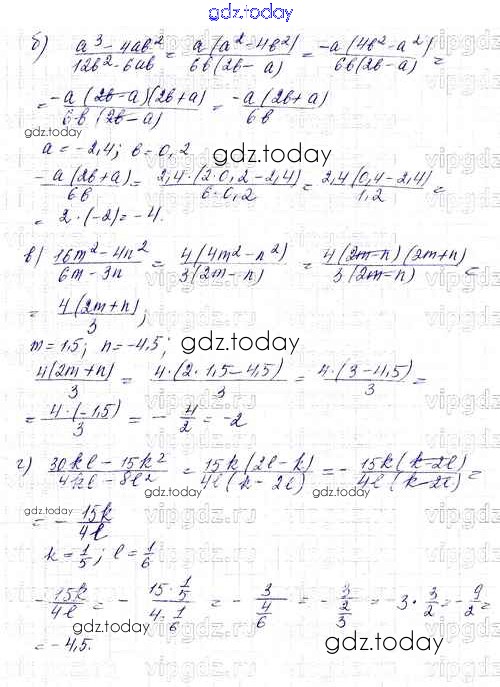 gdz.today
б) (a³ - 4ab²)/(12b² - 6ab) = a(a² - 4b²)/(6b(2b - a)) = -a(4b² - a²)/(6b(2b - a)) =
= -a(2b - a)(2b + a)/(6b(2b - a)) = -a(2b + a)/(6b)
gdz.today
a = -2,4; b = 0,2
gdz.today
-a(2b + a)/(6b) = 2,4·(2·0,2 - 2,4)/(6·0,2) = 2,4(0,4 - 2,4)/1,2 =
= 2·(-2) = -4.
в) (16m² - 4n²)/(6m - 3n) = 4(4m² - n²)/(3(2m - n)) = 4(2m - n)(2m + n)/(3(2m - n)) =
= 4(2m + n)/3;
m = 1,5; n = -4,5;
gdz.today
4(2m + n)/3 = 4·(2·1,5 - 4,5)/3 = 4·(3 - 4,5)/3 =
= 4·(-1,5)/3 = - 4/2 = -2
г) (30kl - 15k²)/(4kl - 8l²) = 15k(2l - k)/(4l(k - 2l)) = - 15k(k - 2l)/(4l(k - 2l)) =
gdz.today
gdz.today
= - 15k/4l
k = 1/5; l = 1/6
- 15k/4l = - (15·1/5)/(4·1/6) = - 3/(4/6) = - 3/(2/3) = -3·3/2 = - 9/2 =
= -4,5.
gdz.today
gdz.today
vipgdz.ru